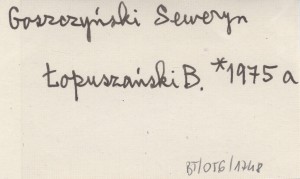 Goszczyński Seweryn
Łopuszański B. *1975 a
BT/OTG/1248